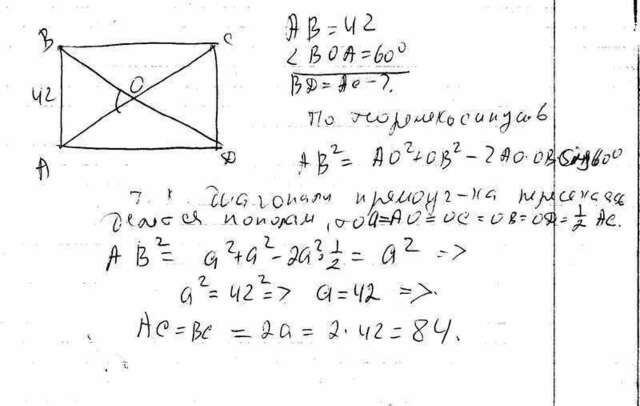 B C
O
42
A D
AB = 42
∠BOA = 60°
BD = AC - ?
По теореме косинусов
AB² = AO² + OB² - 2AO·OB 60°
Т.к. диагонали прямоуг-ка
делятся пополам, a = AO = OC = OB = OD = ½ AC.
AB² = a² + a² - 2a²·½ = a² =>
a² = 42² => a = 42 =>
AC = BC = 2a = 2·42 = 84.